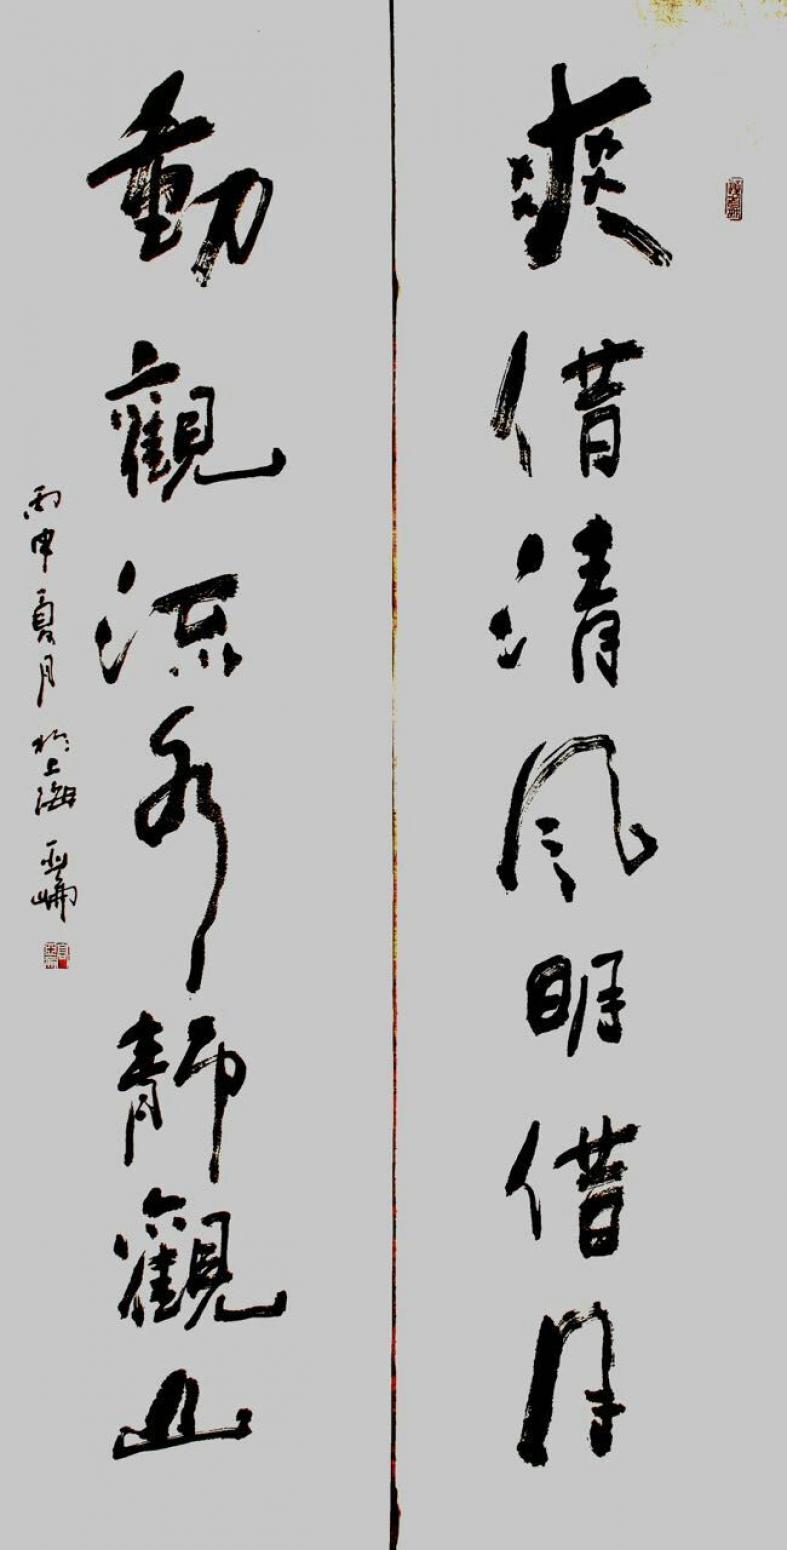 爽借清風明借月
動觀流水靜觀山
丙申夏月於上海